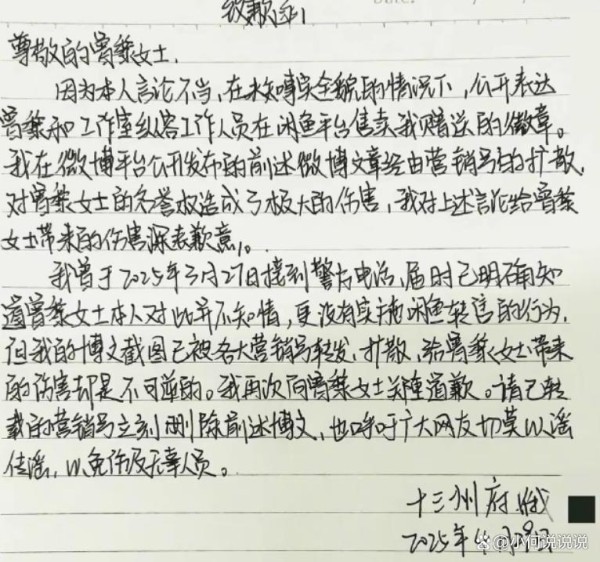 致歉函
尊敬的曾黎女士:
因为本人言论不当,在未知事实全貌的情况下,公开表达
曾黎和工作室纵容工作人员在闲鱼平台售卖我赠送的徽章。
我在微博平台公开发布的前述微博文章经由营销号的扩散,
对曾黎女士的名誉权造成了极大的伤害,我对上述言论给曾黎
女士带来的伤害深表歉意。
我曾于2025年3月27日接到警方电话,届时已明确知
道曾黎女士本人对此并不知情,更没有实施闲鱼转售的行为,
但我的博文截图已被各大营销号转发、扩散,给曾黎女士带来
的伤害却是不可逆的。我再次向曾黎女士道歉。请已转
载的营销号立刻删除前述博文,也呼吁广大网友切莫以谣
传谣,以免伤及无辜人员。
十三州府
2025年4月9日
@小何说说说